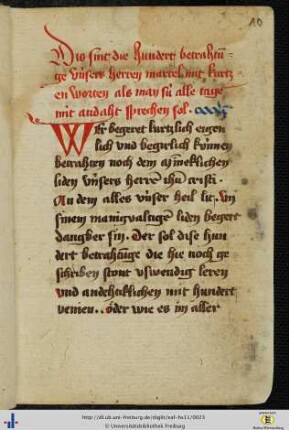 10
Dis sint die hundert betrahtū-
ge vnsers herren martel mit kurtz
en worten als man sú alle tage
mit andaht sprechen sol.
Wer begeret kurtzlich eigen
lich vnd begirlich kónnen
betrahten noch dem
liden vnsers herrē ihū cristi
An dem alles vnser heil lit. vn̄
sinem manigualtigē liden begert
dangber sin. Der sol dise hun
dert betrahtūge die hie noch ge
schriben stont vswendig leren
vnd andehteklichen mit hundert
venien. oder wie es im aller
http://dl.ub.uni-freiburg.de/diglit/
© Universitätsbibliothek Freiburg